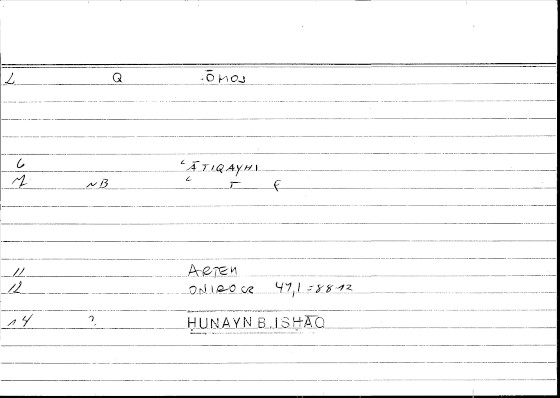 L Q .ōmos
6 ʿĀTIQAYHI
7 NB ʿ T F
11 ARTEM
12 ONIROCR 47,1 = 88 12
14 ? ḤUNAYN B. ISḤĀQ